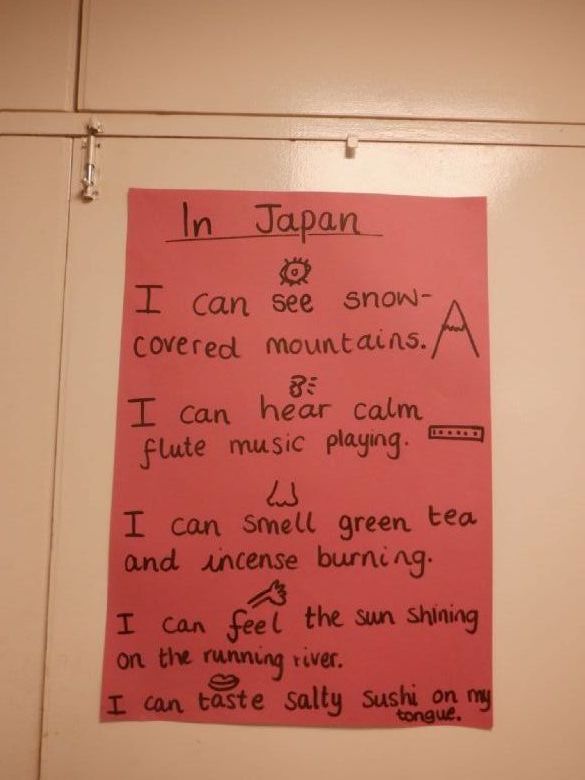 In Japan
I can see snow-
covered mountains.
I can hear calm
flute music playing.
I can smell green tea
and incense burning.
I can feel the sun shining
on the running river.
I can taste salty sushi on my
tongue.